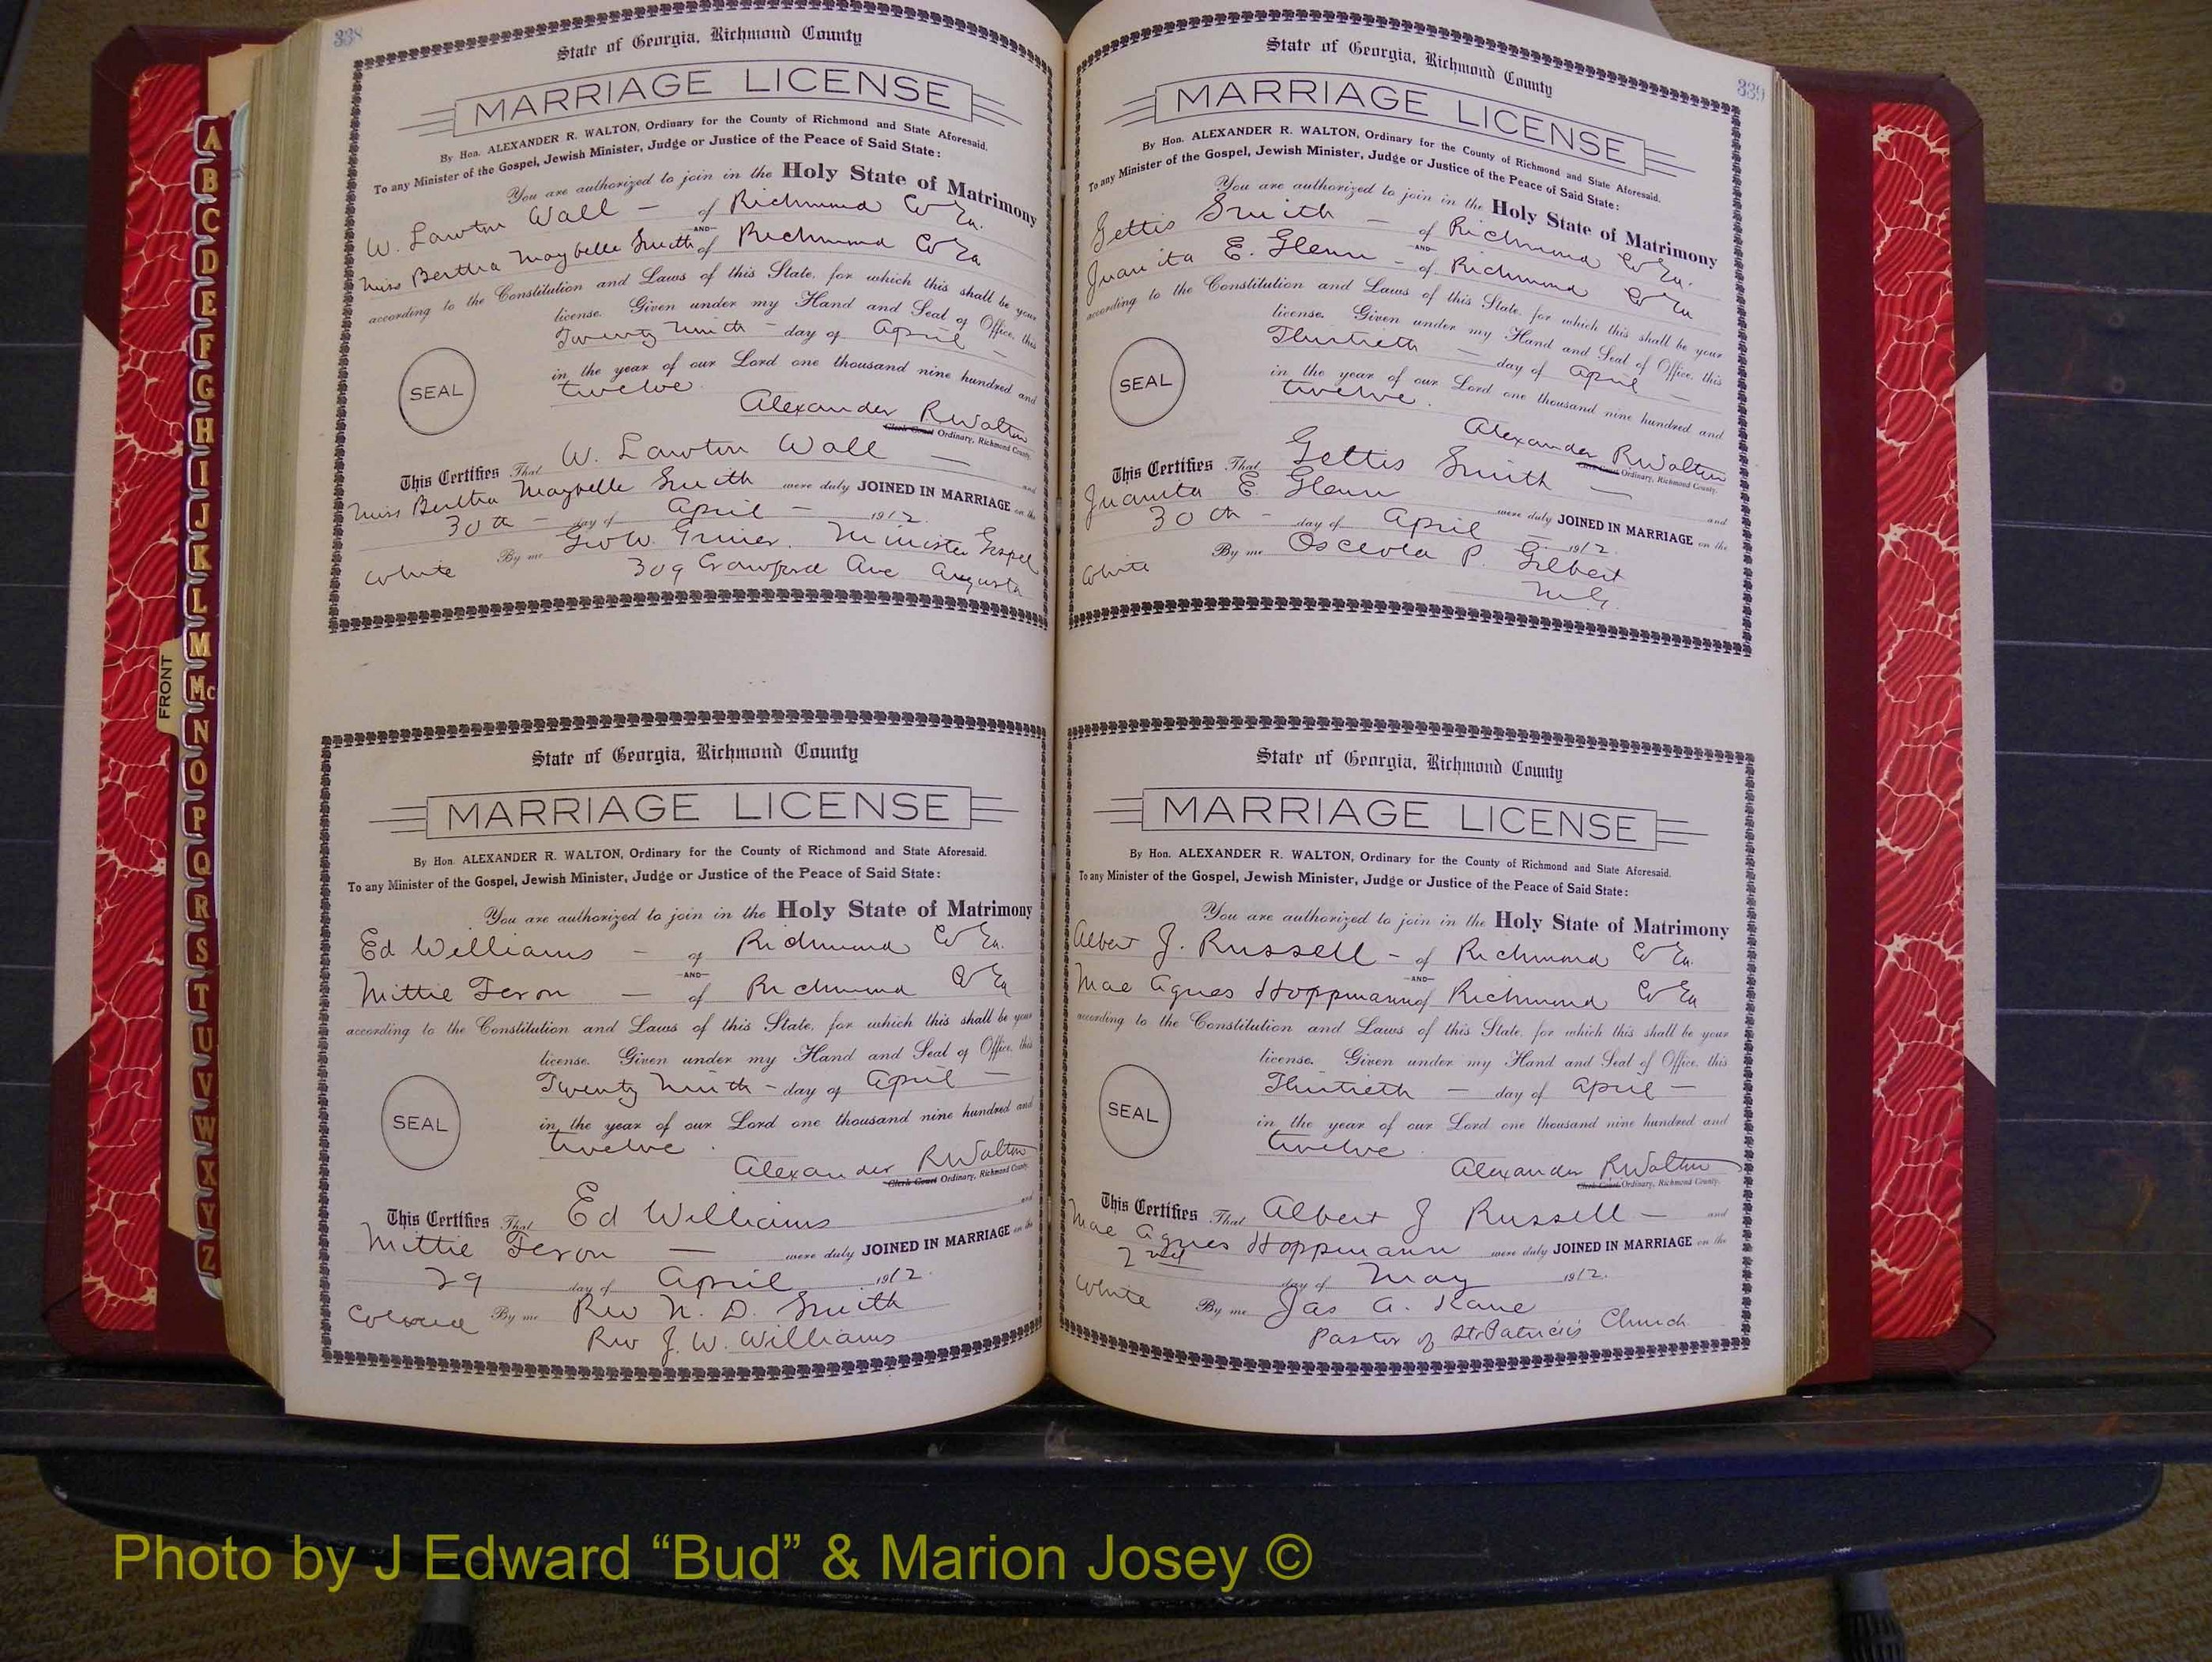 338
State of Georgia, Richmond County
MARRIAGE LICENSE
By Hon. ALEXANDER R. WALTON, Ordinary for the County of Richmond and State Aforesaid.
To any Minister of the Gospel, Jewish Minister, Judge or Justice of the Peace of Said State:
You are authorized to join in the Holy State of Matrimony
W. Lawton Wall - of Richmond Co Ga.
AND
Miss Bertha Maybelle Smith of Richmond Co Ga
according to the Constitution and Laws of this State, for which this shall be your
license. Given under my Hand and Seal of Office, this
Twenty Ninth - day of April -
in the year of our Lord one thousand nine hundred and
twelve.
SEAL
Alexander R Walton
Clerk Court Ordinary, Richmond County.
This Certifies That W. Lawton Wall - and
Miss Bertha Maybelle Smith were duly JOINED IN MARRIAGE on the
30th - day of April - 1912.
White By me Geo W. Minister Gospel
309 Crawford Ave Augusta
State of Georgia, Richmond County
MARRIAGE LICENSE
By Hon. ALEXANDER R. WALTON, Ordinary for the County of Richmond and State Aforesaid.
To any Minister of the Gospel, Jewish Minister, Judge or Justice of the Peace of Said State:
You are authorized to join in the Holy State of Matrimony
Ed Williams - of Richmond Co Ga.
AND
Mittie - of Richmond Co Ga
according to the Constitution and Laws of this State, for which this shall be your
license. Given under my Hand and Seal of Office, this
Twenty Ninth - day of April -
in the year of our Lord one thousand nine hundred and
twelve.
SEAL
Alexander R Walton
Clerk Court Ordinary, Richmond County.
This Certifies That Ed Williams and
Mittie - were duly JOINED IN MARRIAGE on the
29 day of April 1912.
Colored By me Rev N. D. Smith
Rev J. W. Williams
339
State of Georgia, Richmond County
MARRIAGE LICENSE
By Hon. ALEXANDER R. WALTON, Ordinary for the County of Richmond and State Aforesaid.
To any Minister of the Gospel, Jewish Minister, Judge or Justice of the Peace of Said State:
You are authorized to join in the Holy State of Matrimony
Gettis Smith - of Richmond Co Ga.
AND
Juanita E. Glenn - of Richmond Co Ga
according to the Constitution and Laws of this State, for which this shall be your
license. Given under my Hand and Seal of Office, this
Thirtieth - day of April -
in the year of our Lord one thousand nine hundred and
twelve.
SEAL
Alexander R Walton
Clerk Court Ordinary, Richmond County.
This Certifies That Gettis Smith - and
Juanita E Glenn were duly JOINED IN MARRIAGE on the
30th - day of April - 1912.
White By me Osceola P. Gilbert
M.G.
State of Georgia, Richmond County
MARRIAGE LICENSE
By Hon. ALEXANDER R. WALTON, Ordinary for the County of Richmond and State Aforesaid.
To any Minister of the Gospel, Jewish Minister, Judge or Justice of the Peace of Said State:
You are authorized to join in the Holy State of Matrimony
Albert J. Russell - of Richmond Co Ga.
AND
Mae Agnes Hoppmann of Richmond Co Ga
according to the Constitution and Laws of this State, for which this shall be your
license. Given under my Hand and Seal of Office, this
Thirtieth - day of April -
in the year of our Lord one thousand nine hundred and
twelve.
SEAL
Alexander R Walton
Clerk Court Ordinary, Richmond County.
This Certifies That Albert J Russell - and
Mae Agnes Hoppmann were duly JOINED IN MARRIAGE on the
2nd day of May 1912.
White By me Jas A. Kane
Pastor of St. Patrick's Church
A
B
C
D
E
F
G
H
I
J
K
L
M
Mc
N
O
P
Q
R
S
T
U
V
W
X
Y
Z
FRONT
Photo by J Edward “Bud” & Marion Josey ©